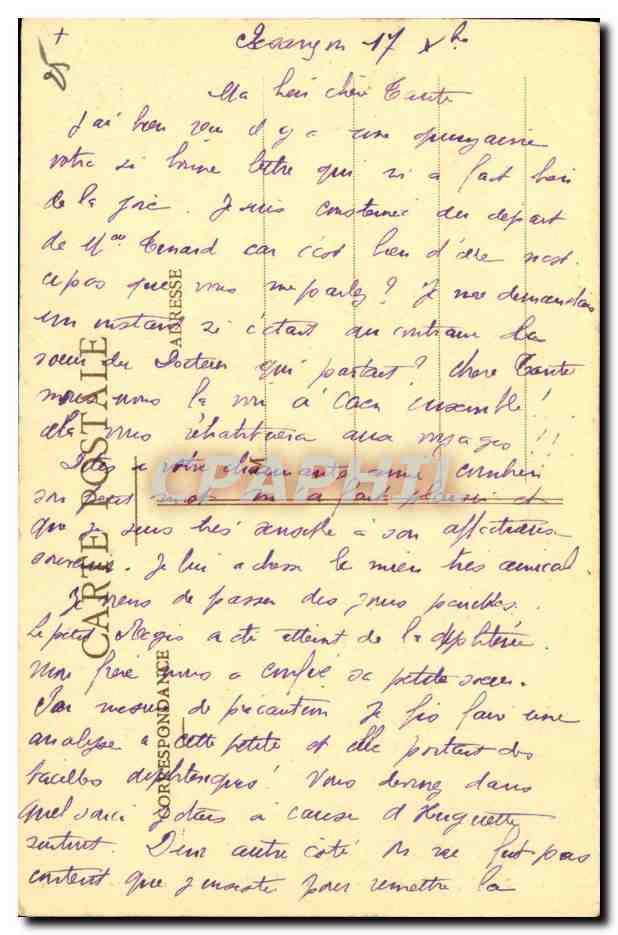 25
17 Xbre
Ma bien chère Tante
J'ai bien reçu il y a une quinzaine
votre si bonne lettre qui m'a fait bien
de la joie. Je suis consternée du départ
de Mme car c'est bien d'elle n'est-
ce pas que vous me parlez? Je me demandais
un instant si c'était au contraire la
soeur du Docteur qui partait? chère Tante
nous vous la voir à Caen ensemble!
cela vous réhabituera aux voyages!!
Dites à votre charmante amie combien
son petit mot m'a fait plaisir et
que je suis très sensible à son affectueux
souvenir. Je lui adresse le mien très amical.
Je viens de passer des jours pénibles.
Le petit Régis a été atteint de la diphtérie.
Mon frère nous a confié sa petite soeur.
Par mesure de précaution je fis faire une
analyse à cette petite et elle portait des
bacilles diphtériques! Vous devinez dans
quel souci j'étais à cause d'Huguette
surtout. D'un autre côté on ne fut pas
content que j'insiste pour remettre la
CARTE POSTALE
CORRESPONDANCE
ADRESSE
M
CPAPHIL